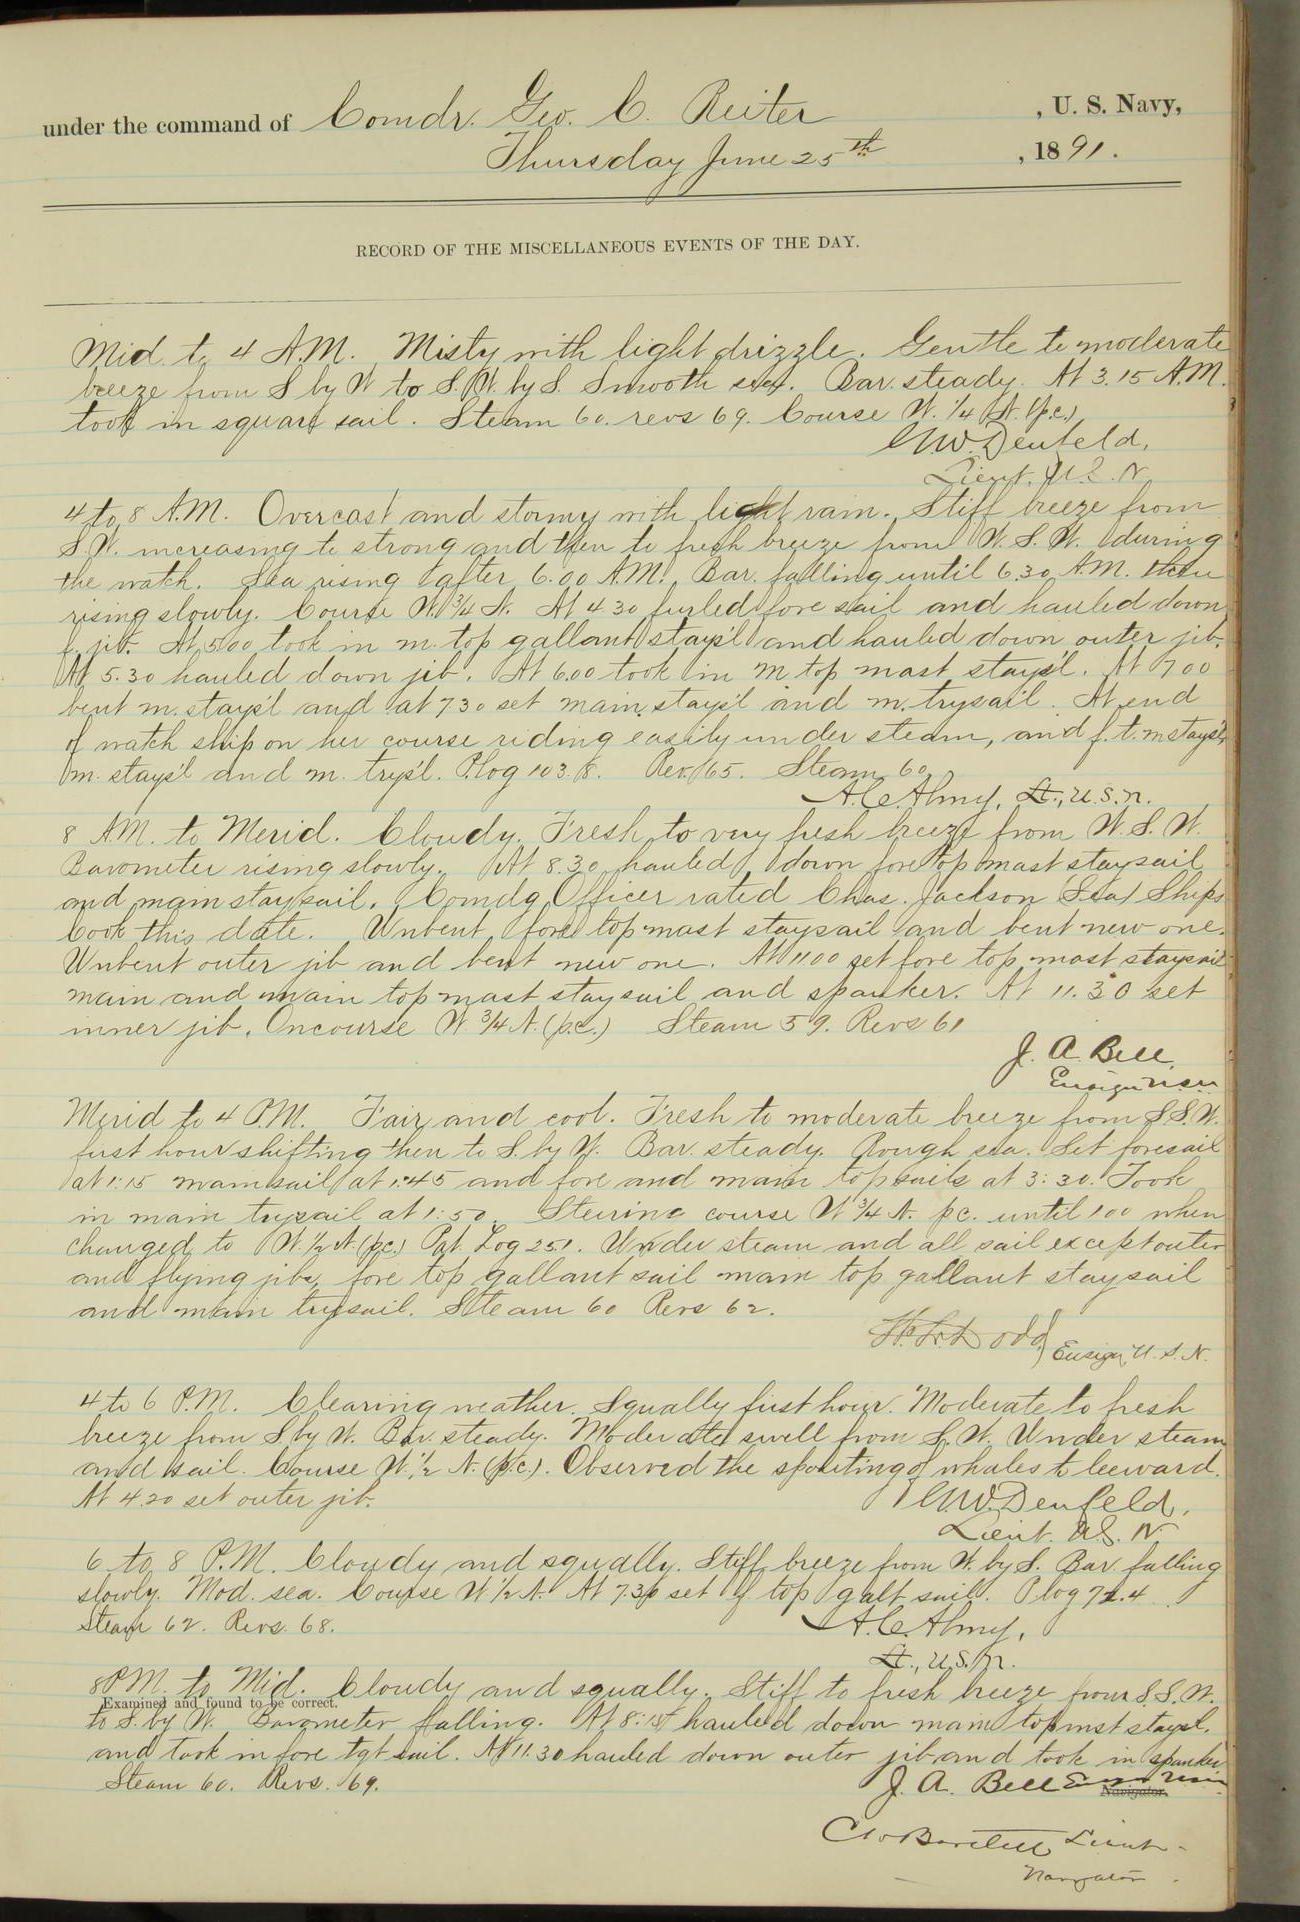 under the command of Comdr. Geo. C. Reiter , U. S. Navy,
Thursday June 25th , 1891.
RECORD OF THE MISCELLANEOUS EVENTS OF THE DAY.
Mid. to 4 A.M. Misty with light drizzle. Gentle to moderate
breeze from S by W to S.W. by S. Smooth sea. Bar. steady. At 3.15 A.M.
took in square sail. Steam 60. revs 69. Course W. 1/4 N. (p.c.)
G.W. Denfeld,
Lieut. U.S.N
4 to 8 A.M. Overcast and stormy with light rain. Stiff breeze from
S.W. increasing to strong and then to fresh breeze from W.S.W. during
the watch. Sea rising after 6.00 A.M. Bar. falling until 6.30 A.M. then
rising slowly. Course W. 3/4 N. At 4.30 furled fore sail and hauled down
f. jib. At 5.00 took in m. top gallant stays'l and hauled down outer jib.
At 5.30 hauled down jib. At 6.00 took in m top mast stays'l. At 7 00
bent m. stays'l and at 7.30 set main stays'l and m. trysail. At end
of watch ship on her course riding easily under steam, and f.t.m stays'l,
m. stays'l and m. trys'l. P.log 103.8. Rev. 65. Steam 60
A.C. Almy, Lt., U.S.N.
8 AM. to Merid. Cloudy. Fresh to very fresh breeze from W.S.W.
Barometer rising slowly. At 8.30 hauled down fore top mast staysail
and main staysail. Comdg Officer rated Chas. Jackson (Sea) Ships
Cook this date. Unbent fore top mast staysail and bent new one.
Unbent outer jib and bent new one. At 11.00 set fore top mast staysail
main and main top mast staysail and spanker. At 11.30 set
inner jib. On course W. 3/4 N. (p.c.) Steam 59. Revs 61
J. A. Bell,
Ensign U.S.N
Merid to 4 P.M. Fair and cool. Fresh to moderate breeze from S.S.W.
first hour shifting then to S. by W. Bar. steady. Rough sea. Set foresail
at 1:15 mainsail at 1:45 and fore and main topsails at 3:30. Took
in main trysail at 1:50. Steering course W 3/4 N. p.c. until 1 00 when
changed to W. 1/2 N. (p.c.) Pat. Log 25.1. Under steam and all sail except outer
and flying jibs, fore top gallant sail main top gallant staysail
and main trysail. Steam 60 Revs 62.
Dodd, Ensign, U.S.N.
4 to 6 P.M. Clearing weather. Squally first hour. Moderate to fresh
breeze from S. by W. Bar. steady. Moderate swell from S.W. Under steam
and sail. Course W. 1/2 N. (p.c.). Observed the spouting of whales to leeward.
At 4.20 set outer jib.
G.W. Denfeld,
Lieut. U.S.N
6 to 8 P.M. Cloudy and squally. Stiff breeze from W. by S. Bar. falling
slowly. Mod. sea. Course W 1/2 N. At 7.30 set f. top galt sail. P log 72.4
Steam 62. Revs. 68.
A.C. Almy,
Lt., U.S.N.
8 P.M. to Mid. Cloudy and squally. Stiff to fresh breeze from S.S.W.
Examined and found to be correct.
to S. by W. Barometer falling. At 8:15 hauled down main topmst staysl.
and took in fore tgt sail. At 11.30 hauled down outer jib and took in spanker
Steam 60. Revs. 69.
J. A. Bell Ensign U.S.N
Navigator.
C W Bartlett Lieut
Navigator